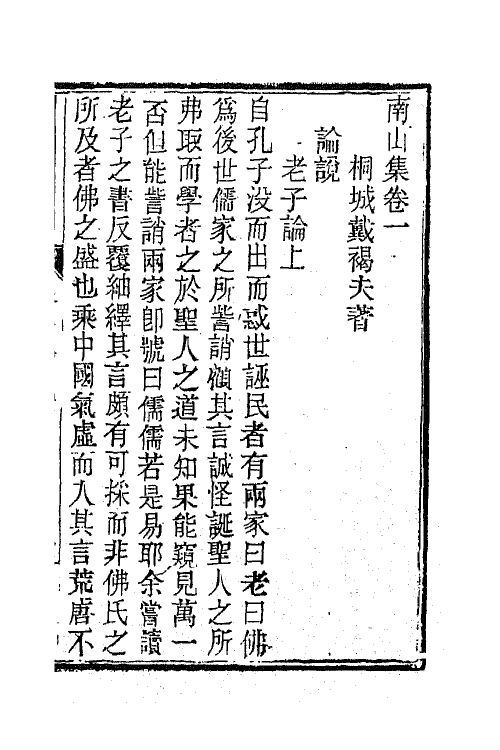 南山集卷一
桐城戴褐夫著
論說
老子論上
自孔子没而出而惑世誣民者有兩家曰老曰佛
爲後世儒家之所訾誚顧其言誠怪誕聖人之所
弗取而學者之於聖人之道未知果能窺見萬一
否但能訾誚兩家卽號曰儒儒若是易耶余嘗讀
老子之書反覆紬繹其言頗有可採而非佛氏之
所及者佛之盛也乘中國氣虛而入其言荒唐不